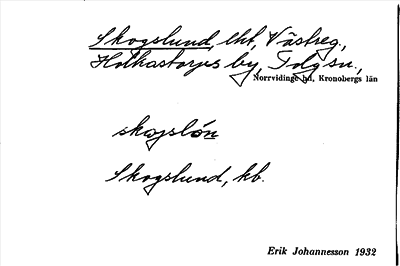 Skogslund, lht, Västreg.,
Holkastorps by, Tolg sn.,
Norrvidinge hd, Kronobergs län
skogslón
Skogslund, kb.
Erik Johannesson 1932